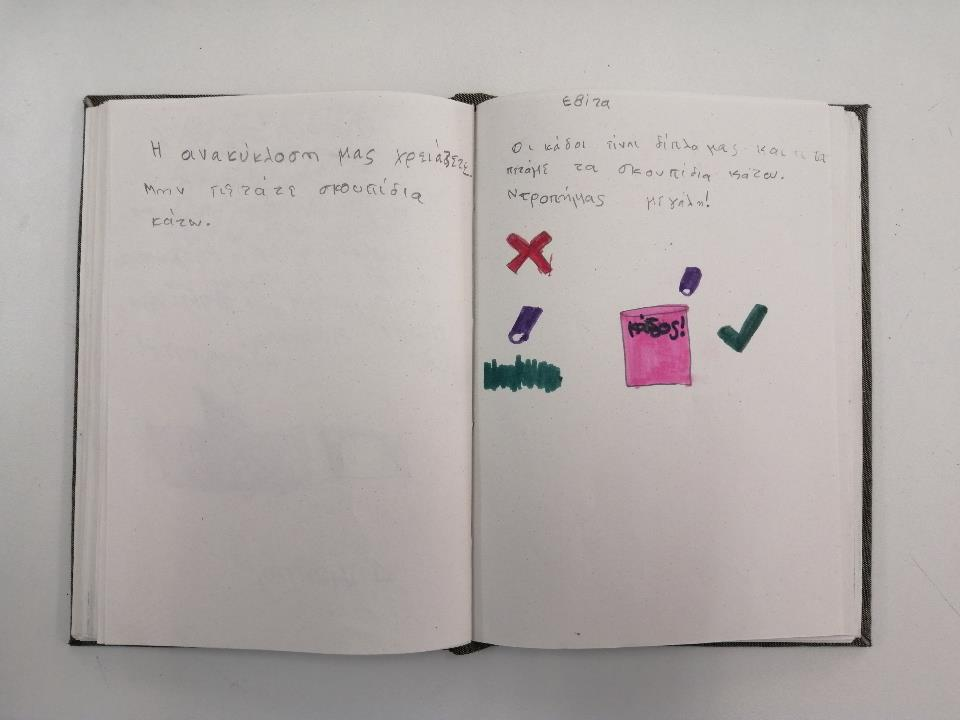 Η ανακύκλοση μας χρειάζετε.
Μην πετάτε σκουπίδια
κάτω.
Εβίτα
Οι κάδοι είναι δίπλα μας και
πετάμε τα σκουπίδια κάτου.
Ντροπήμας μεγάλη!
κάδος!